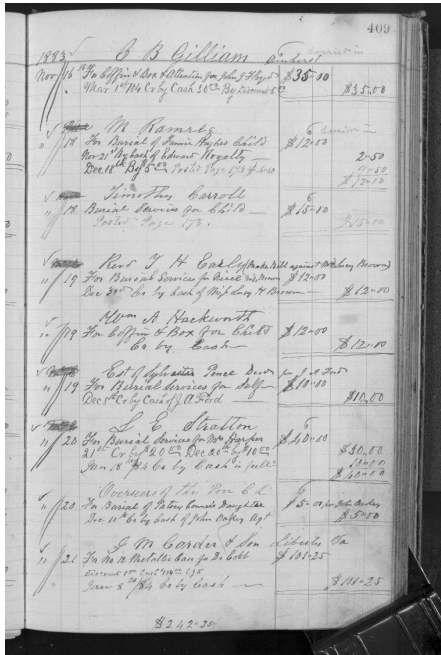 409
1883 C B Gilliam Amherst
Nov 16 For Coffin & Box & Attention for John J $35.00
Mar 1st 84 Cr by Cash 30.00 By Discount 5.00 $35.00
M Ramsey
" 18 For Burial of Hughes Child $12.00
Nov 21st By Cash of Edward Royally 2.50
Dec 18th By 5.00
$12.00
Timothy Carroll
" 18 Burial Services for Child $15.00
Posted Page 173. $15.00
Revd T H Early (Make Bill against Miss Lucy Brown)
" 19 For Burial Services for $12.00
Dec Cr by Cash of Miss Lucy H Brown $12.00
Wm A Hackworth
" 19 For Coffin & Box for Child $12.00
Cr by Cash $12.00
Est of Sylvester Ponce Decd per J A Ford
" 19 For Burial Services for Self $10.00
Dec 5th Cr by Cash of J A Ford $10.00
L E Stratton
" 20 For Burial Services for Mrs Harper $40.00
21st Cr by 20.00 Dec 20th by 10.00 $30.00
Jan 18th 84 Cr by Cash in full 10.00
$40.00
Overseers of the Poor C L
" 20 For Burial of Daughter $5.00 per John Oakey
Dec 11th Cr by Cash of John Oakey Agt $5.00
G M Carder & Son Liberty Va
" 21 For No 12 Metallic Case for De Cobb $101.25
Jan 8th 84 Cr by Cash $101.25
$242.25